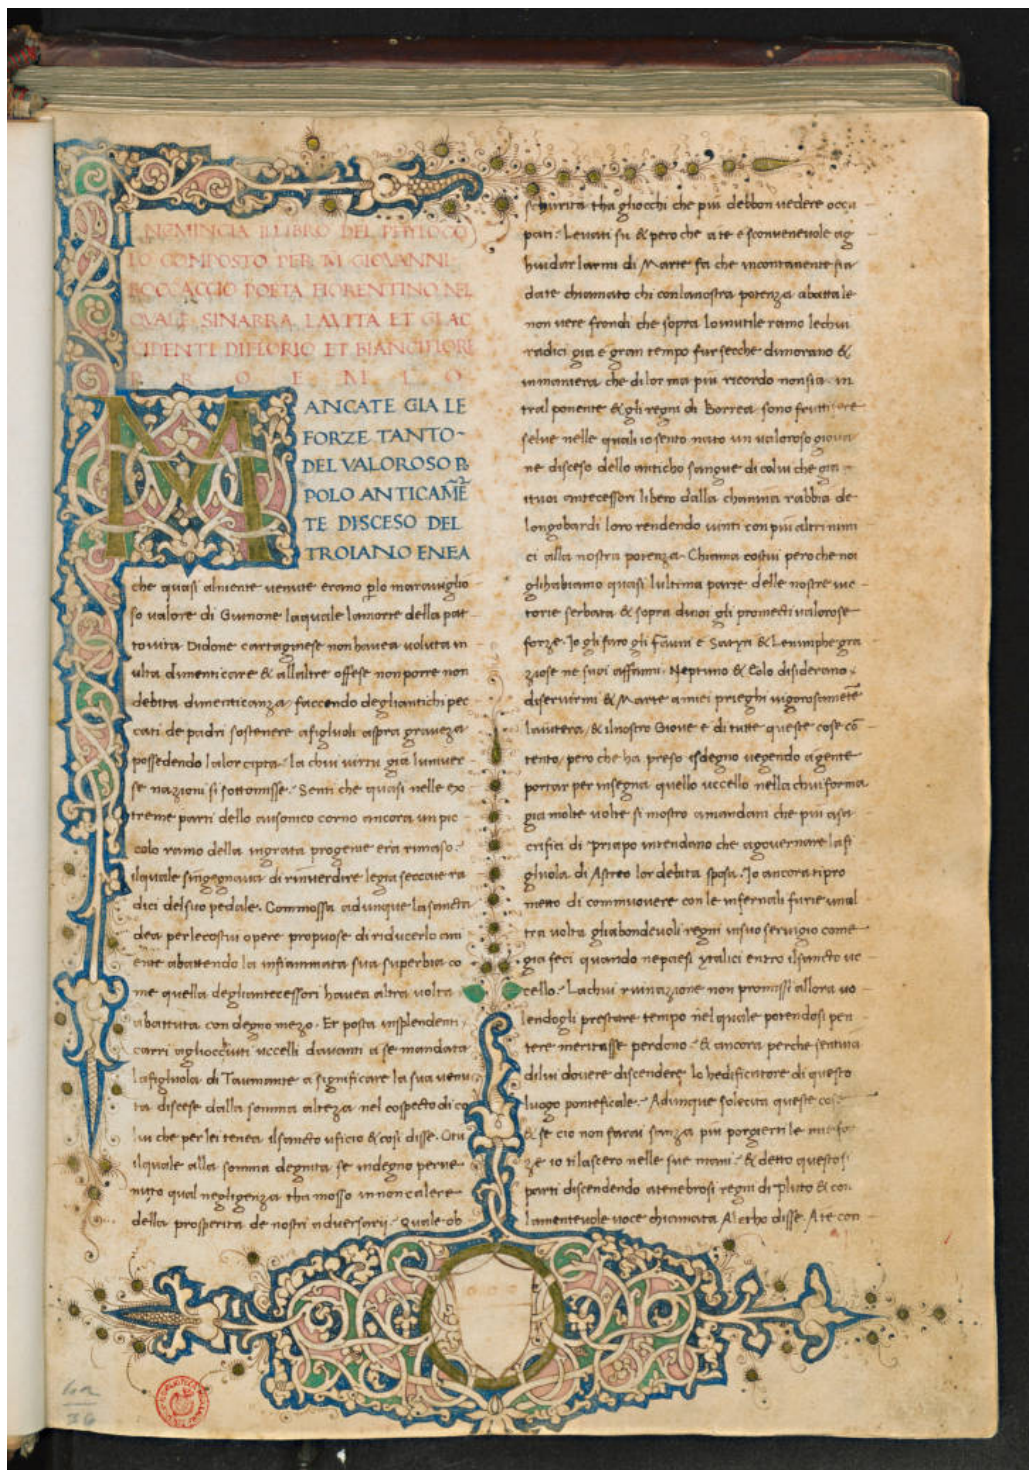 INCOMINCIA ILLIBRO DEL PHYLOCO
LO COMPOSTO PER M GIOVANNI
BOCCACCIO POETA FIORENTINO NEL
QVALE SINARRA LAVITA ET GLAC
CIDENTI DIFLORIO ET BIANCIFIORE
P R O E M I O
MANCATE GIA LE
FORZE TANTO
DEL VALOROSO P̲O
POLO ANTICAMẼ
TE DISCESO DEL
TROIANO ENEA
che quasi alniente venute erano p̲lo maraviglio
so valore di Giunone laquale lamorte della pat
tovita Didone cartaginese non havea voluta in
ulta dimenticare & allaltre offese non porre non
debita dimenticanza faccendo degliantichi pec
cati de padri sostenere afigluoli aspra graveza
possedendo lalor cipta. la chui virtu gia luniver
se nazioni si sottomisse. Senti che quasi nelle ex
treme parti dello ausonico corno ancora un pic
colo ramo della ingrata progenie era rimaso.
ilquale singegnava di rinverdire legia seccate ra
dici delsuo pedale. Commossa adunque la sancta
dea perlecostui opere propuose di riducerlo ani
ente abattendo la infiammata sua superbia co
me quella degliantecessori havea altra volta
abattuta con degno mezo. Et posta insplendenti
carri agliocchiuti uccelli davanti a se mandata
lafigluola di Taumante a significare la sua venu
ta discese dalla somma alteza nel cospecto di co
lui che per lei tenea ilsancto uficio & cosi disse. Otu
ilquale alla somma degnita se indegno perve
nuto qual negligenza tha mosso in non calere
della prosperita de nostri adversarij. Quale ob
schurita tha gliocchi che piu debbon vedere occu
pati. Levati su & pero che a te e sconvenevole ag
huidar larmi di Marte fa che incontanente sia
date chiamato chi conlanostra potenza abatta le
non vere frondi che sopra lo inutile ramo lechui
radici gia e gran tempo fur secche dimorano &
inmaniera che di lor mai piu ricordo nonsia. in
tral ponente & gli regni di Borrea sono fruttifere
selve nelle quali io sento nato un valoroso giova
ne disceso dello anticho sangue di colui che gia
ituoi antecessori libero dalla chanina rabbia de
longobardi loro rendendo vinti con piu altri nimi
ci alla nostra potenza. Chiama costui pero che noi
glihabiamo quasi lultima parte delle nostre vic
torie serbata & sopra dinoi gli promecti valorose
forze. Io gli faro gli fauni e Satyri & Le nimphe gra
ziose ne suoi affanni. Neptuno & Eolo disiderano
diservirmi & Marte amiei prieghi vigorosamẽte
laiutera, & ilnostro Giove e di tutte queste cose cõ
tento, pero che ha preso isdegno vegendo agente
portar per insegna quello uccello nella chui forma
gia molte volte si mostro amandani che piu asa
crifici di Priapo intendano che agovernare lafi
gluola di Astreo lor debita sposa. Io ancora ti pro
metto di commuovere con le infernali furie unal
tra volta gliabondevoli regni insuo servigio come
gia feci quando nepaesi ytalici entro ilsancto uc
cello. Lachui ruinazione non promissi allora vo
lendogli prestare tempo nel quale potendosi pen
tere meritasse perdono. & ancora perche sentiva
dilui dovere discendere lo hedificatore di questo
luogo ponteficale. Adunque solecita queste cose
& se cio non farai sanza piu porgierti le mie for
ze io ti lascero nelle sue mani. & detto questo si
parti discendendo atenebrosi regni di Pluto & con
lamentevole voce chiamata Aletho disse. A te con